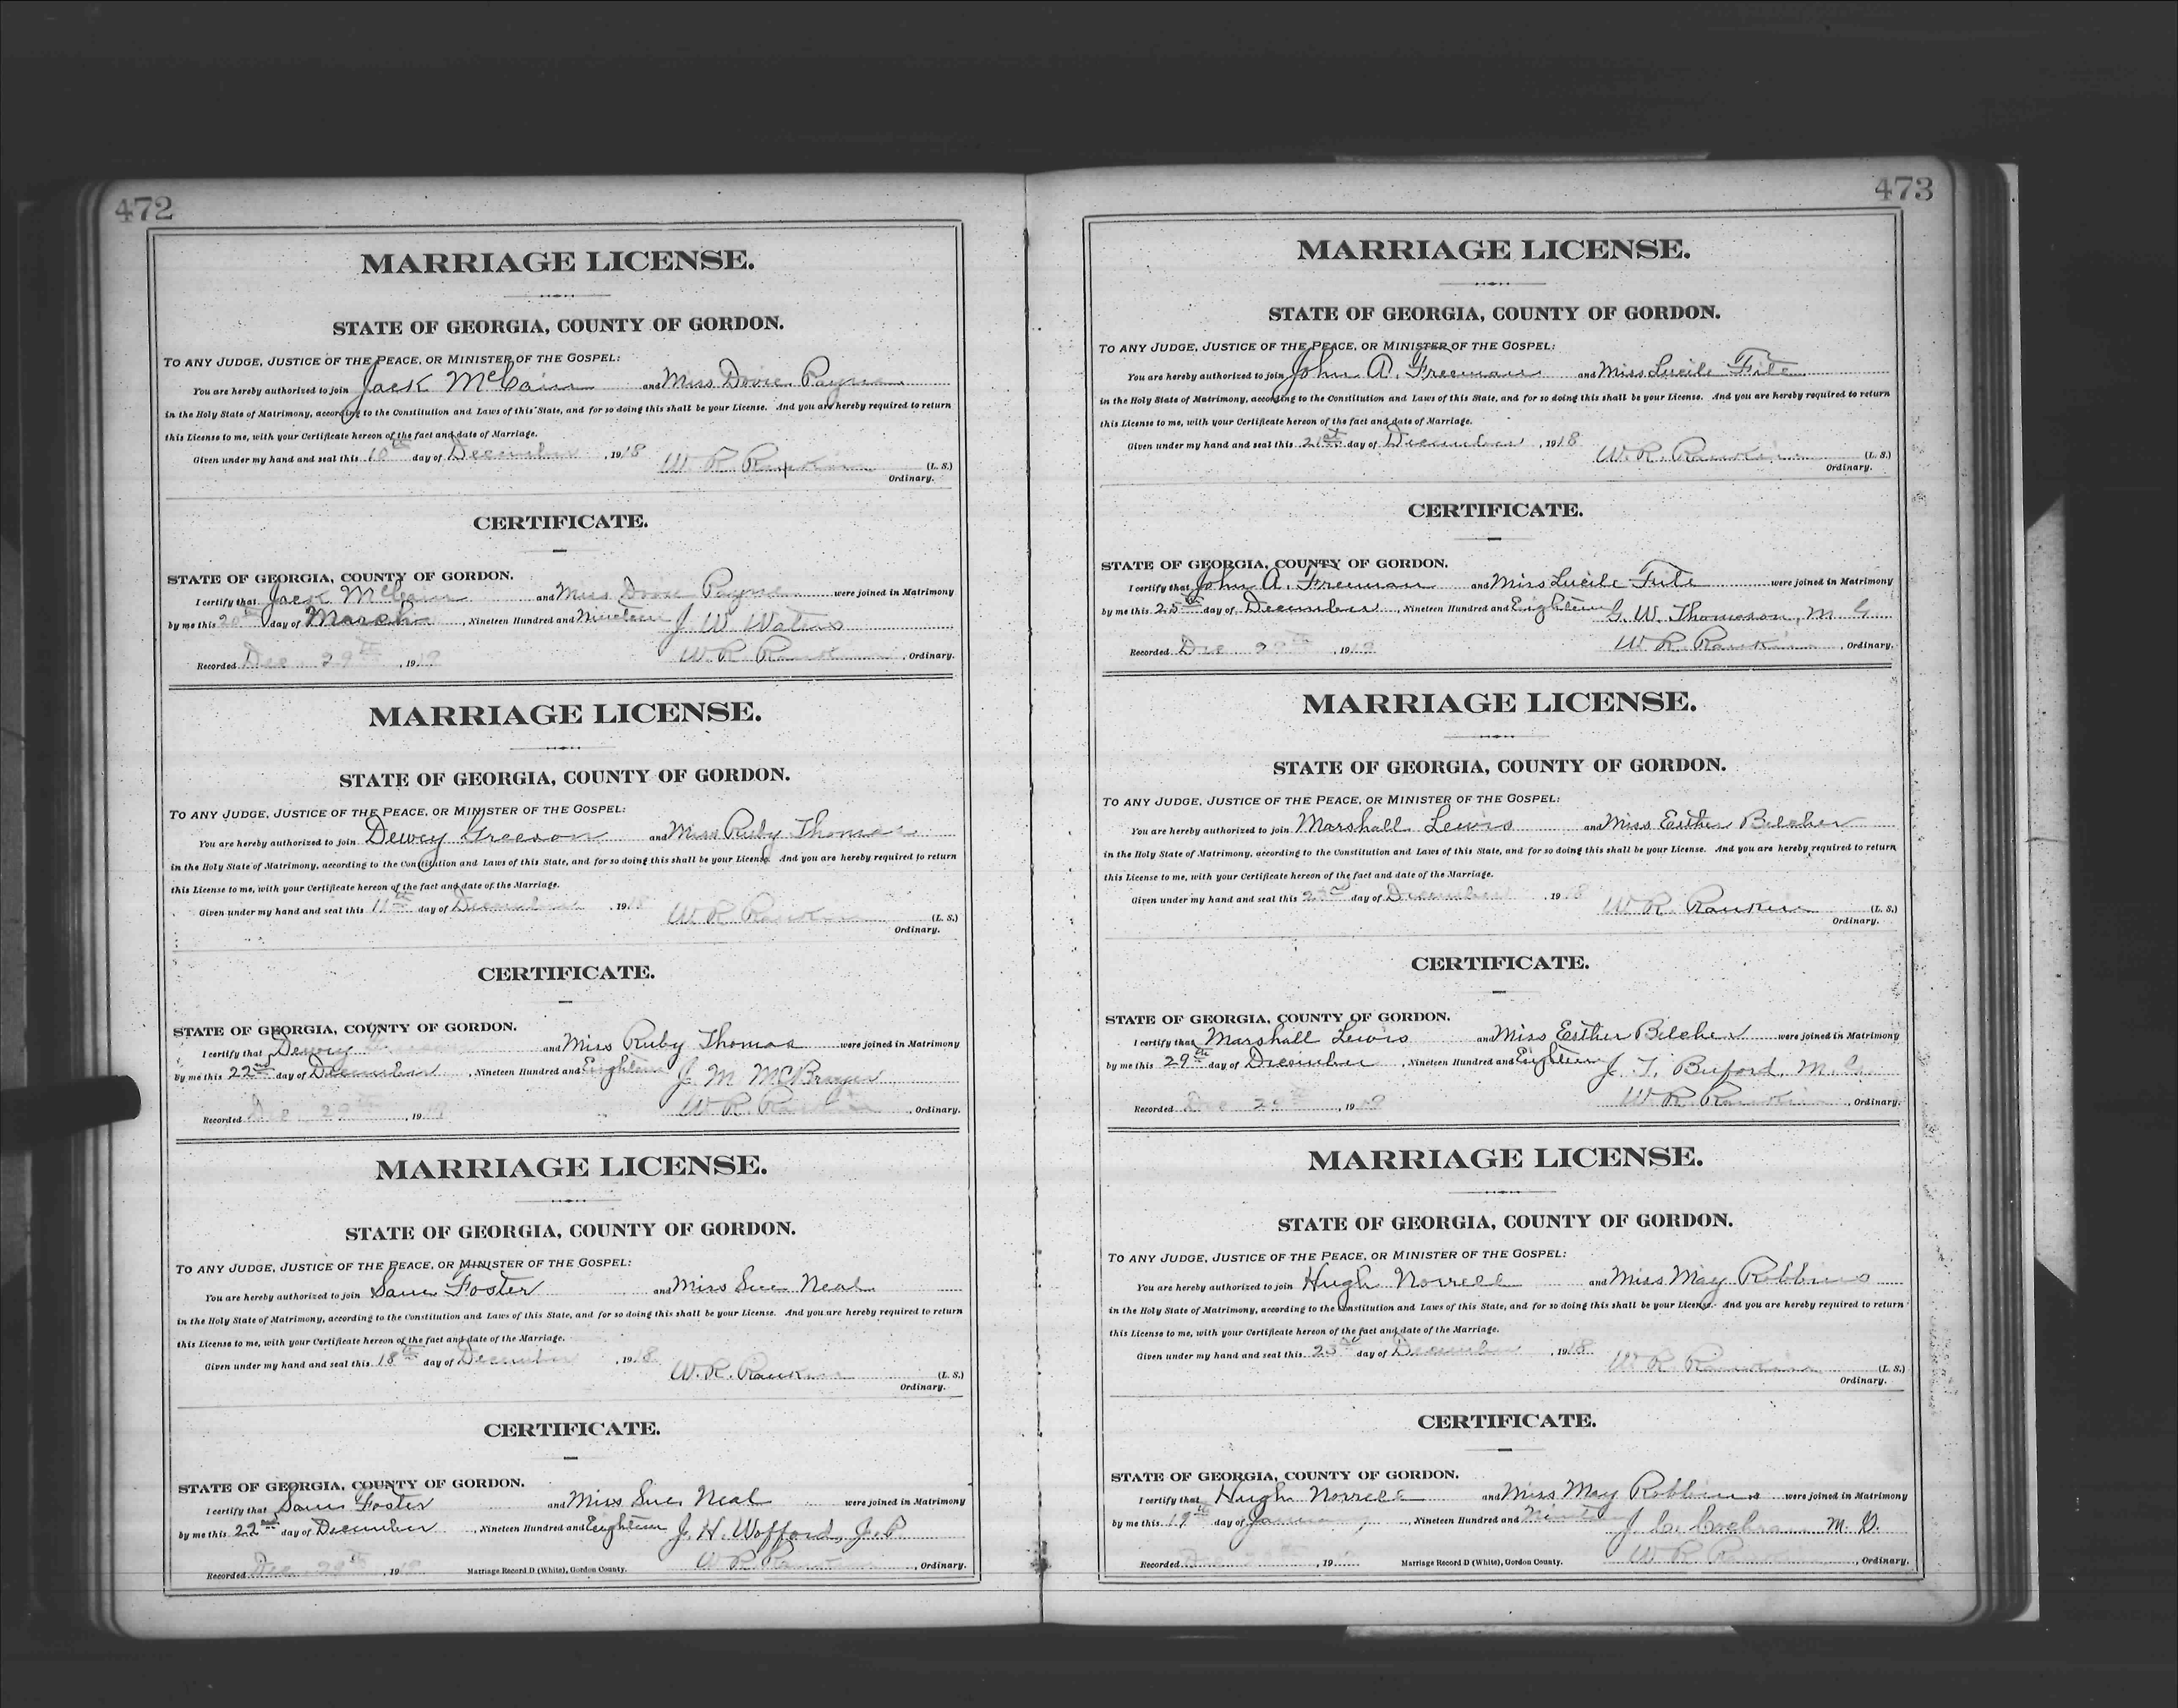 472
MARRIAGE LICENSE.
STATE OF GEORGIA, COUNTY OF GORDON.
TO ANY JUDGE, JUSTICE OF THE PEACE, OR MINISTER OF THE GOSPEL:
You are hereby authorized to join Jack McCain and Miss Dovie Payne
in the Holy State of Matrimony, according to the Constitution and Laws of this State, and for so doing this shall be your License. And you are hereby required to return
this License to me, with your Certificate hereon of the fact and date of Marriage.
Given under my hand and seal this 10th day of December, 1918 W. R. Rankin (L. S.)
Ordinary.
CERTIFICATE.
STATE OF GEORGIA, COUNTY OF GORDON.
I certify that Jack McCain and Miss Dovie Payne were joined in Matrimony
by me this 20th day of March, Nineteen Hundred and Nineteen J. W. Waters
Recorded Dec 29th, 19 W. R. Rankin, Ordinary.
MARRIAGE LICENSE.
STATE OF GEORGIA, COUNTY OF GORDON.
TO ANY JUDGE, JUSTICE OF THE PEACE, OR MINISTER OF THE GOSPEL:
You are hereby authorized to join Dewey Greeson and Miss Ruby Thomas
in the Holy State of Matrimony, according to the Constitution and Laws of this State, and for so doing this shall be your License. And you are hereby required to return
this License to me, with your Certificate hereon of the fact and date of the Marriage.
Given under my hand and seal this 11th day of December, 1918 W. R. Rankin (L. S.)
Ordinary.
CERTIFICATE.
STATE OF GEORGIA, COUNTY OF GORDON.
I certify that Dewey and Miss Ruby Thomas were joined in Matrimony
by me this 22nd day of December, Nineteen Hundred and Eighteen J. M. McBrayer
Recorded Dec 29th, 19 W. R. Rankin, Ordinary.
MARRIAGE LICENSE.
STATE OF GEORGIA, COUNTY OF GORDON.
TO ANY JUDGE, JUSTICE OF THE PEACE, OR MINISTER OF THE GOSPEL:
You are hereby authorized to join Sam Foster and Miss Sue Neal
in the Holy State of Matrimony, according to the Constitution and Laws of this State, and for so doing this shall be your License. And you are hereby required to return
this License to me, with your Certificate hereon of the fact and date of the Marriage.
Given under my hand and seal this 18th day of December, 1918 W. R. Rankin (L. S.)
Ordinary.
CERTIFICATE.
STATE OF GEORGIA, COUNTY OF GORDON.
I certify that Sam Foster and Miss Sue Neal were joined in Matrimony
by me this 22nd day of December, Nineteen Hundred and Eighteen J. H. Wofford, J. P
Recorded Dec 29th, 19 Marriage Record D (White), Gordon County. W. R. Rankin, Ordinary.
473
MARRIAGE LICENSE.
STATE OF GEORGIA, COUNTY OF GORDON.
TO ANY JUDGE, JUSTICE OF THE PEACE, OR MINISTER OF THE GOSPEL:
You are hereby authorized to join John A. Freeman and Miss Lucile Fite
in the Holy State of Matrimony, according to the Constitution and Laws of this State, and for so doing this shall be your License. And you are hereby required to return
this License to me, with your Certificate hereon of the fact and date of Marriage.
Given under my hand and seal this 21st day of December, 1918 W. R. Rankin (L. S.)
Ordinary.
CERTIFICATE.
STATE OF GEORGIA, COUNTY OF GORDON.
I certify that John A. Freeman and Miss Lucile Fite were joined in Matrimony
by me this 25th day of December, Nineteen Hundred and Eighteen G. W. Thomason, M. G.
Recorded Dec 29th, 19 W. R. Rankin, Ordinary.
MARRIAGE LICENSE.
STATE OF GEORGIA, COUNTY OF GORDON.
TO ANY JUDGE, JUSTICE OF THE PEACE, OR MINISTER OF THE GOSPEL:
You are hereby authorized to join Marshall Lewis and Miss Esther Belcher
in the Holy State of Matrimony, according to the Constitution and Laws of this State, and for so doing this shall be your License. And you are hereby required to return
this License to me, with your Certificate hereon of the fact and date of the Marriage.
Given under my hand and seal this day of December 1918 W. R. Rankin (L. S.)
Ordinary.
CERTIFICATE.
STATE OF GEORGIA, COUNTY OF GORDON.
I certify that Marshall Lewis and Miss Esther Belcher were joined in Matrimony
by me this 29th day of December, Nineteen Hundred and Eighteen J. T. Buford, M. G.
Recorded Dec, 19 W. R. Rankin, Ordinary.
MARRIAGE LICENSE.
STATE OF GEORGIA, COUNTY OF GORDON.
TO ANY JUDGE, JUSTICE OF THE PEACE, OR MINISTER OF THE GOSPEL:
You are hereby authorized to join Hugh Norrell and Miss May Robbins
in the Holy State of Matrimony, according to the Constitution and Laws of this State, and for so doing this shall be your License. And you are hereby required to return
this License to me, with your Certificate hereon of the fact and date of the Marriage.
Given under my hand and seal this 23rd day of December, 1918 W. R. Rankin (L. S.)
Ordinary.
CERTIFICATE.
STATE OF GEORGIA, COUNTY OF GORDON.
I certify that Hugh Norrell and Miss May Robbins were joined in Matrimony
by me this 19th day of January, Nineteen Hundred and J. C. M. G.
Recorded, 19 Marriage Record D (White), Gordon County. W. R. Rankin, Ordinary.